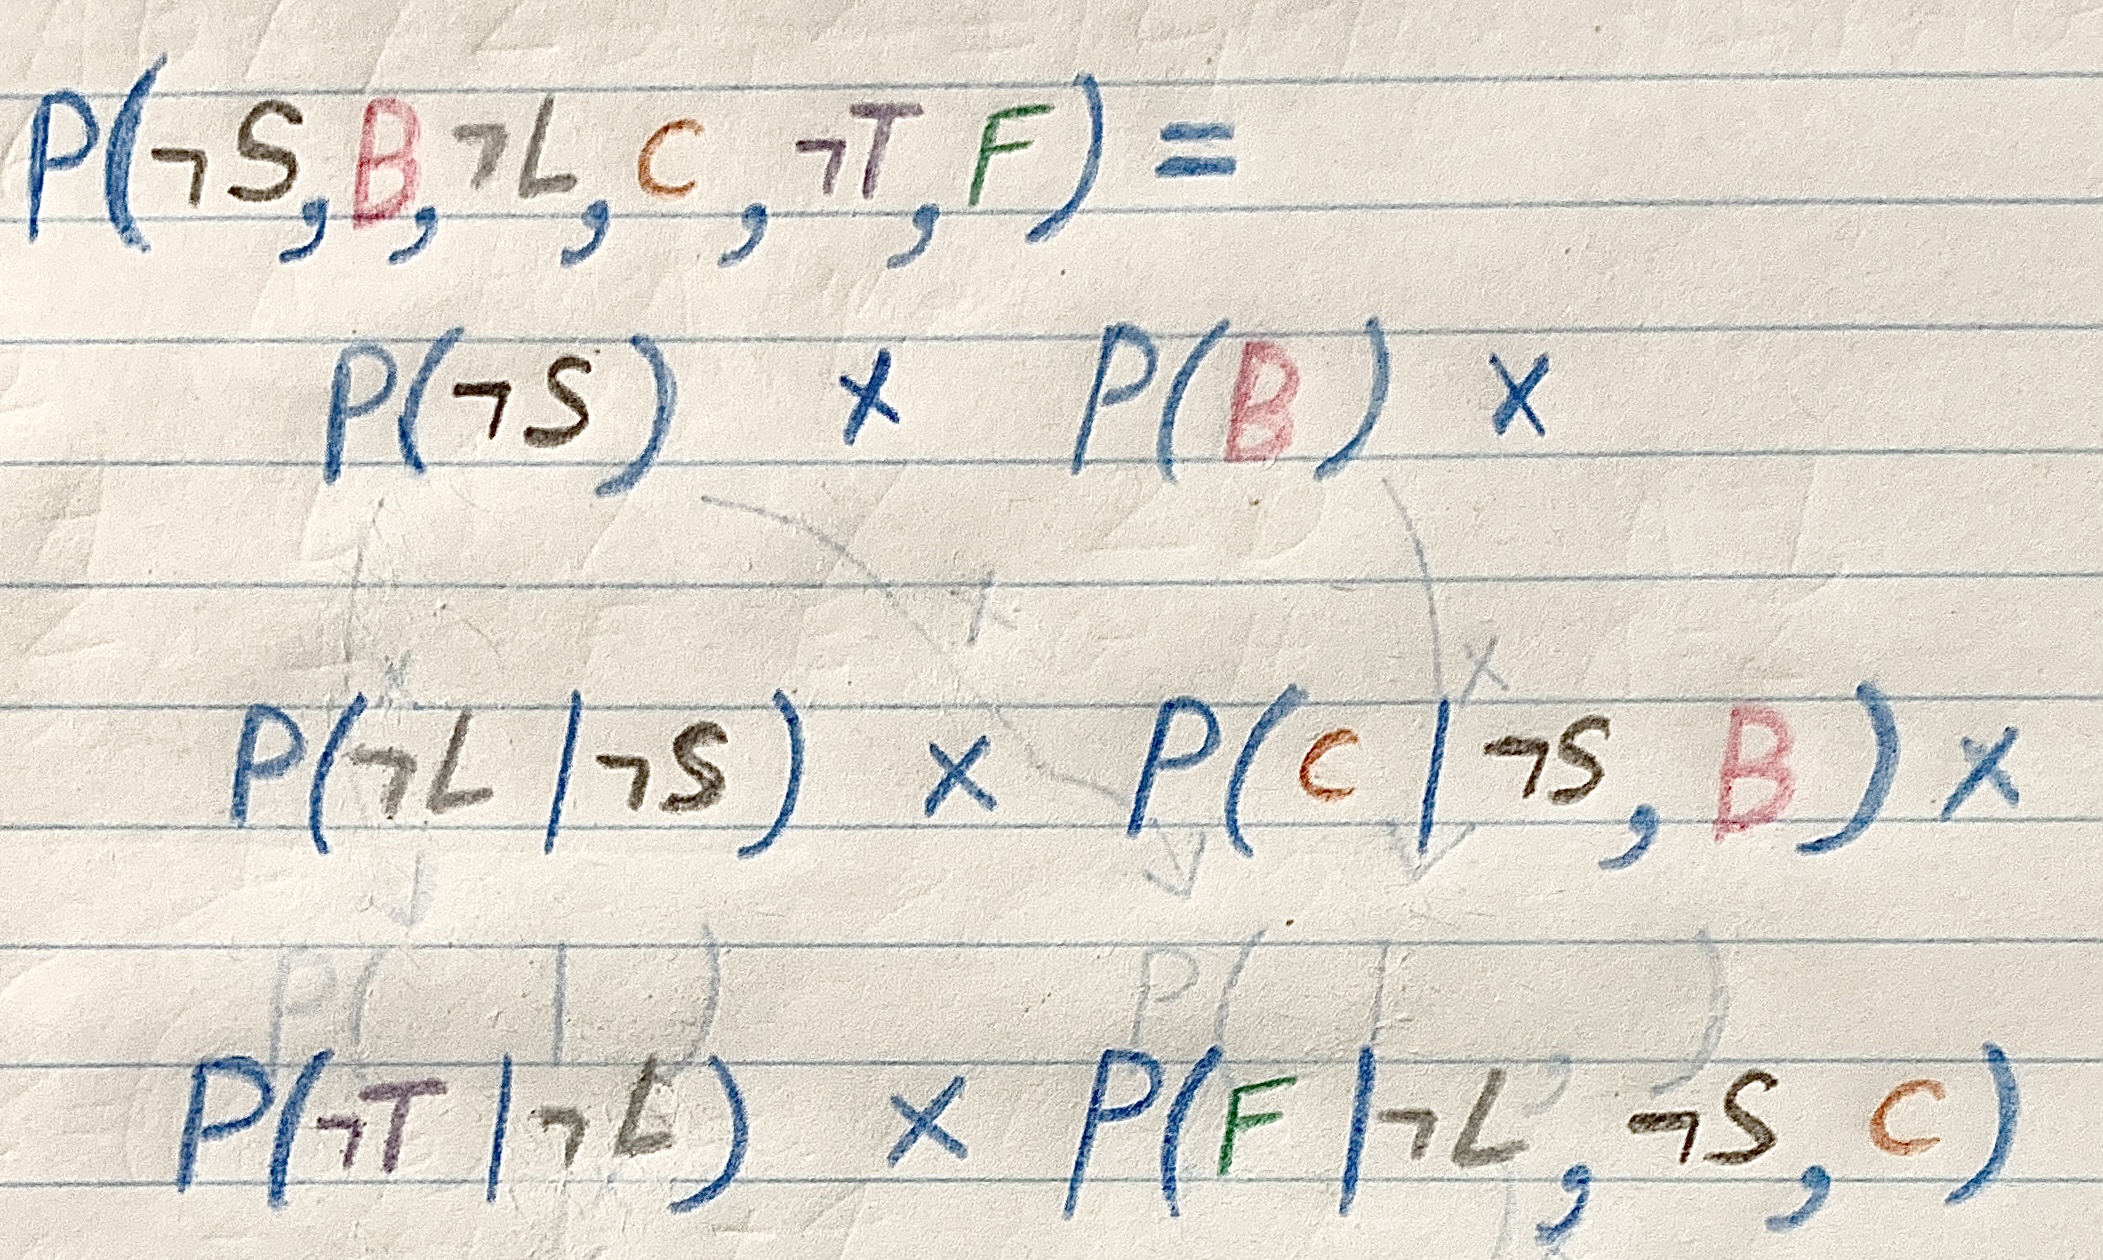 P(¬S, B, ¬L, C, ¬T, F) =
P(¬S) × P(B) ×
P(¬L | ¬S) × P(C | ¬S, B) ×
P( | ) P( | , )
P(¬T | ¬L) × P(F | ¬L, ¬S, C)